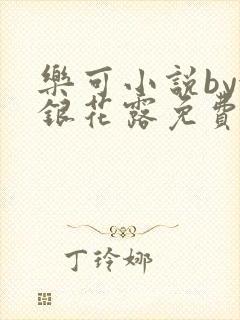 樂可小說by
銀花露免費
丁玲娜